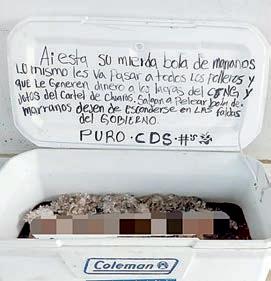 Ai esta su mierda bola de marranos
Lo mismo les va Pasar a todos los polleros y
que Le Generen dinero a las lacras del CJNG, y
Jotos del Cartel de Chapos. Salgan a Pelear bola de
marranos dejen de Esconderse en LAS faldas
del GOBIERNO.
PURO · CDS · #
Coleman